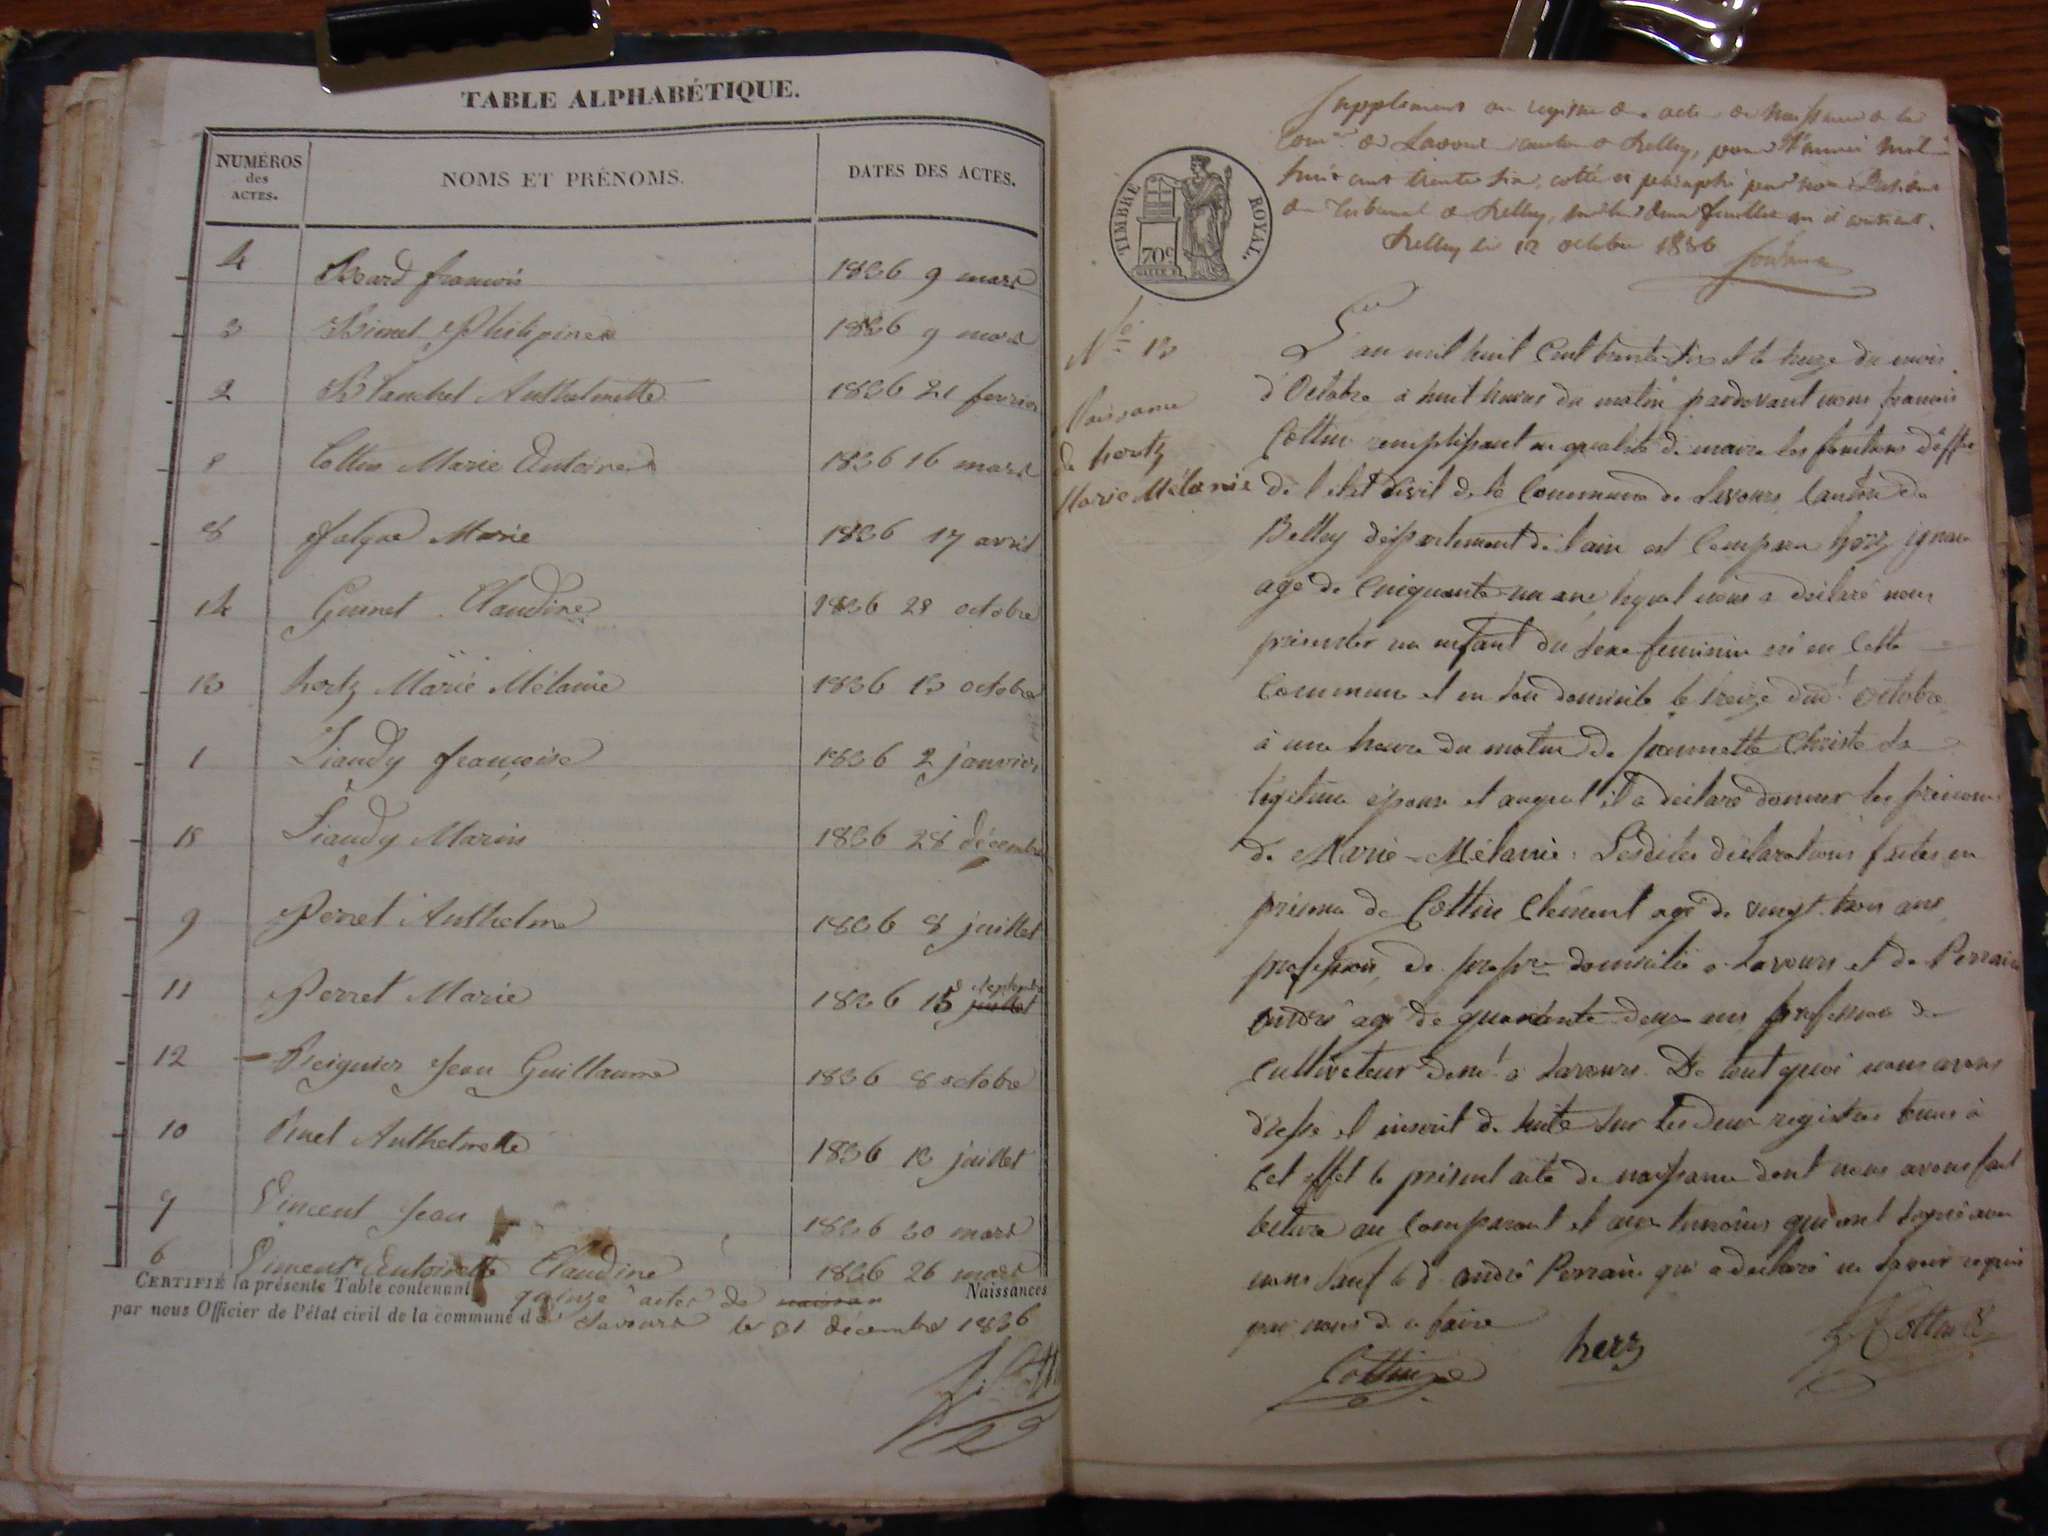 TABLE ALPHABÉTIQUE.
NUMÉROS des ACTES.
NOMS ET PRÉNOMS.
DATES DES ACTES.
4 Bard françois 1836 9 mars
3 Binet Philipine 1836 9 mars
2 Blanchet Anthelmette 1836 21 fevrier
Cottin Marie Antoinette 1836 16 mars
8 falque Marie 1836 17 avril
14 Guinet Claudine 1836 28 octobre
13 hertz Marie Mélanie 1836 13 octobre
1 Liaudy françoise 1836 2 janvier
15 Liaudy Marin 1836 28 décembre
9 Perret Anthelme 1836 8 juillet
11 Perret Marie 1836 15 septembre juillet
12 Reignier Jean Guillaume 1836 8 octobre
10 Anthelmette 1836 13 juillet
7 Vincent Jean 1836 30 mars
6 Vincent Antoinette Claudine 1836 26 mars
CERTIFIÉ la présente Table contenant quinze actes de naissan Naissances
par nous Officier de l'état civil de la commune de Lavours le 31 décembre 1836
Supplement au registre des actes de Naissance de la
Comne de Lavours canton de Belley, pour l'année mil
huit cent trente six, cotté et paraphé par nous Président
du Tribunal de Belley,
Belley le 12 octobre 1836
TIMBRE ROYAL.
70c
No 13
Naissance
de hertz
Marie Mélanie
L'an mil huit Cent trente six et le treize du mois
d'Octobre à huit heures du matin pardevant nous françois
Cottin remplissant en qualité de maire les fonctions d'offer
de l'etat Civil de la Commune de Lavours Canton de
Belley département de l'ain est Comparu herz ignace
agé de Cinquante un ans lequel nous a déclaré nous
présenter un enfant du sexe feminin né en Cette
Commune et en son domicile le treize dudt octobre
à une heure du matin de jeannette Christe sa
légitime épouse et auquel il a déclaré donner les prénoms
de Marie-Mélanie. Lesdites déclarations faites en
présence de Cottin Clément agé de vingt trois ans
profession de propre domicilié a Lavours et de Perrain
andré agé de quarante deux ans profession de
Cultivateur demt à Lavours. De tout quoi nous avons
dressé et inscrit de suite sur les deux registres tenus à
Cet effet le présent acte de naissance dont nous avons fait
lecture au Comparant et aux temoins qui ont signé avec
nous sauf le d. andré Perrain qui a declaré ne savoir requis
par nous de le faire
Cottin herz Cottin